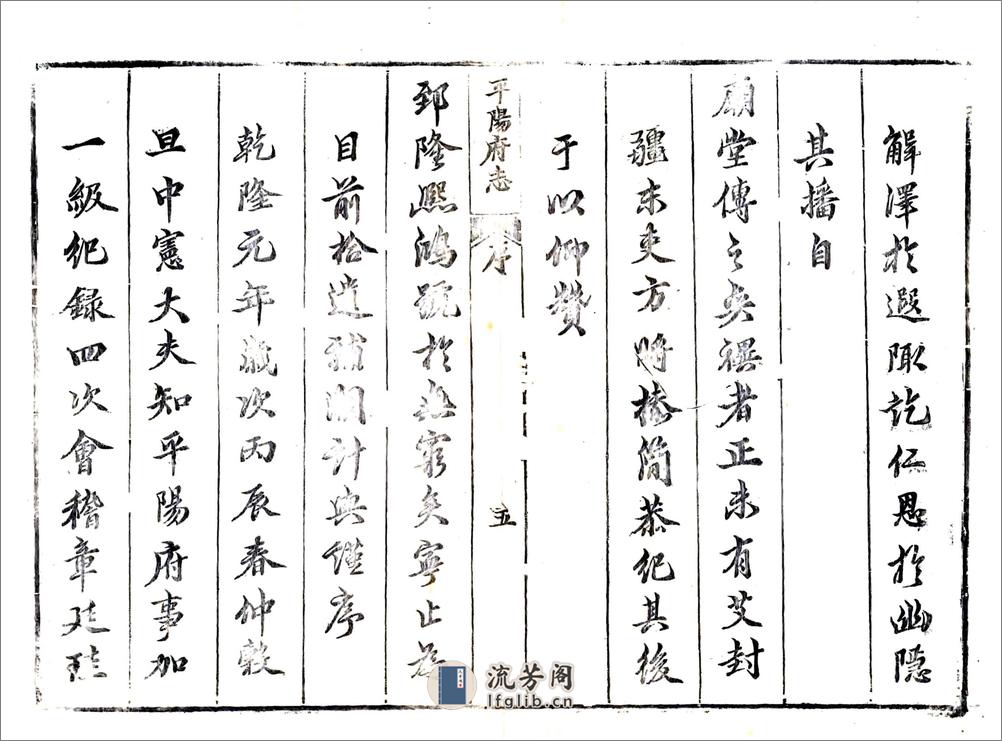 解澤於遐陬訖仁恩於幽隱
其播自
廟堂傳之奕禩者正未有艾封
疆末吏方將捧簡恭紀其後
于以仰贊
平陽府志
序
五
郅隆熙鴻號於無窮矣寧止為
目前拾遺補闕計與謹序
乾隆元年歲次丙辰春仲穀
旦中憲大夫知平陽府事加
一級紀錄四次會稽章廷珪
流芳阁
lfglib.cn